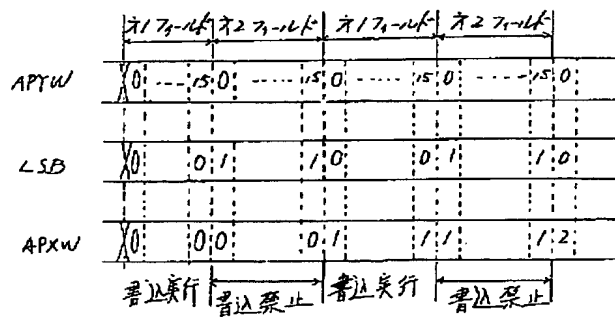 オ1フィールド オ2フィールド オ1フィールド オ2フィールド
APYW 0 ---- 15 0 ----- 15 0 ---- 15 0 ----- 15 0
LSB 0 0 1 1 0 0 1 1 0
APXW 0 0 0 0 1 1 1 1 2
書込実行 書込禁止 書込実行 書込禁止